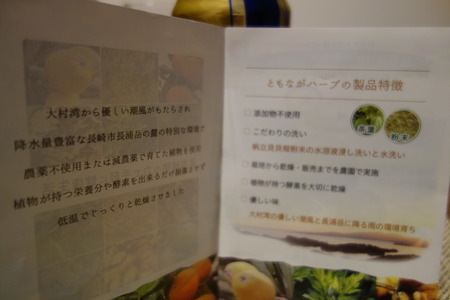 大村湾から優しい潮風がもたらされ
降水量豊富な長崎市長浦品の麓の特別な環境で
農薬不使用または減農薬で育てた植物を使用
植物が持つ栄養分や酵素を出来るだけ損傷させず
低温でじっくりと乾燥させました
ともながハーブの製品特徴
添加物不使用
こだわりの洗い
帆立貝貝殻粉末の水溶液浸し洗いと水洗い
栽培から乾燥・販売までを農園で実施
植物が持つ酵素を大切に乾燥
優しい味
大村湾の優しい潮風と長浦岳に降る雨の環境育ち
茶葉
粉末